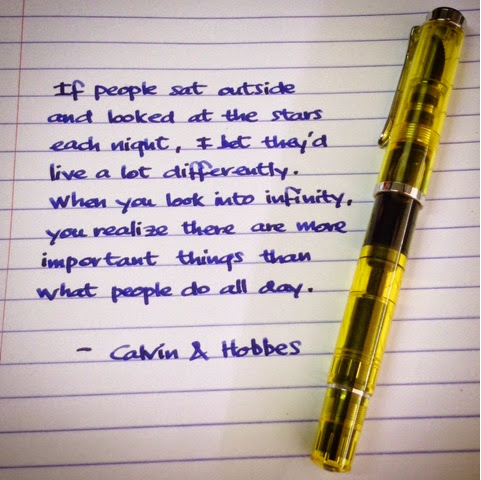 If people sat outside
and looked at the stars
each night, I bet they'd
live a lot differently.
When you look into infinity,
you realize there are more
important things than
what people do all day.
- Calvin & Hobbes